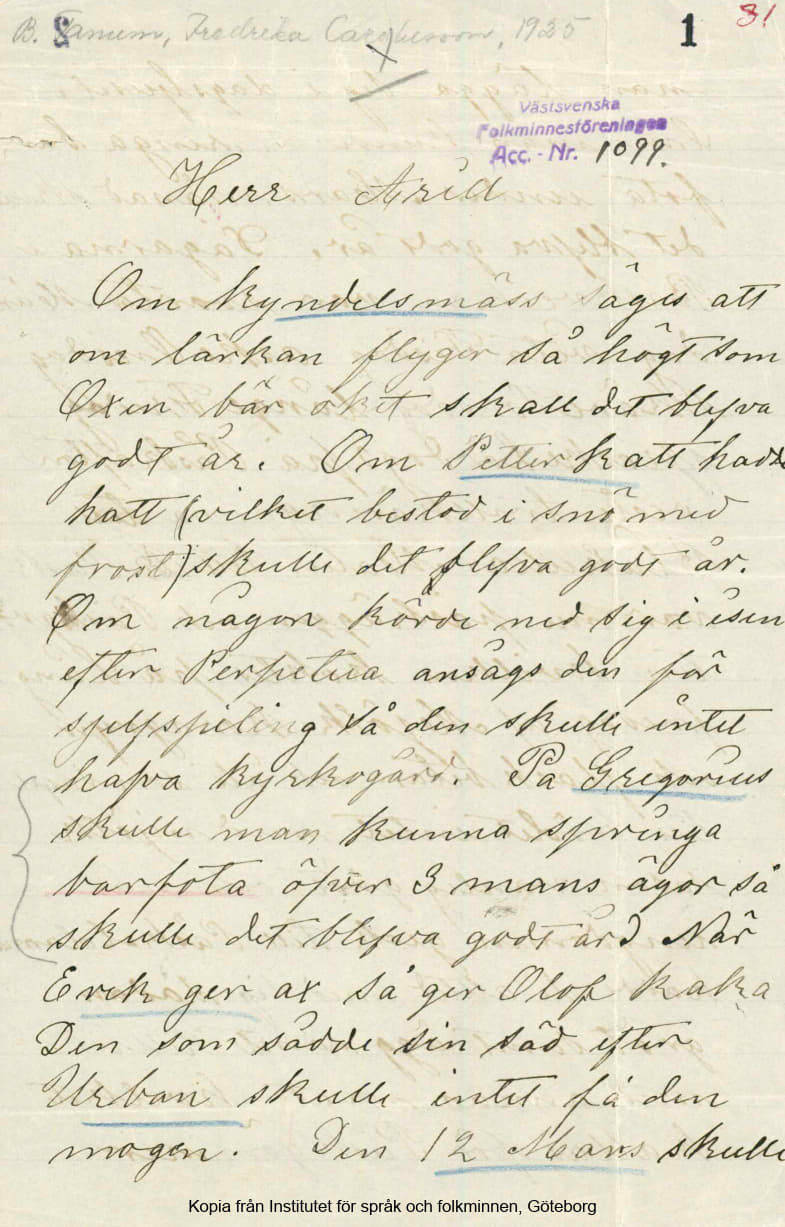 B. Tanum, Fredrika Carpheson, 1925
1
31
Västsvenska
Folkminnesföreningen
Acc. - Nr. 1099.
Herr Arill
Om kyndelsmäss säges att
om lärkan flyger så högt som
Oxen bär oket skall det blefva
godt år. Om Petter katt hade
hatt (vilket bestod i snö med
frost) skulle det blefva godt år.
Om någon körde ned sig i isen
efter Perpetua ansågs den för
sjelfspiling så den skulle intet
hafva kyrkogård. På Gregorius
skulle man kunna springa
barfota öfver 3 mans ägor så
skulle det blefva godt år) När
Erek ger ax så ger Olof kaka
Den som sådde sin säd efter
Urban skulle intet få den
mogen. Den 12 Mars skulle
Kopia från Institutet för språk och folkminnen, Göteborg